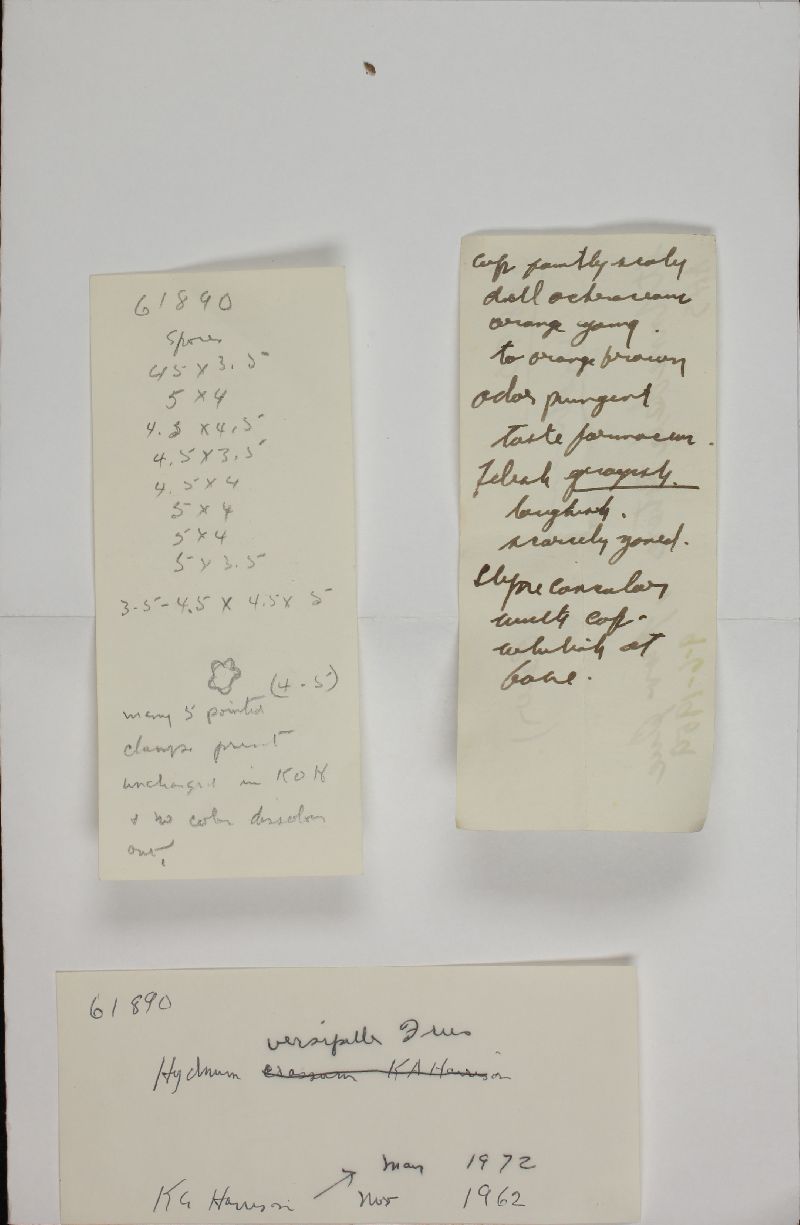 61890
Spores
4.5 x 3.5
5 x 4
4.8 x 4.5
4.5 x 3.5
4.5 x 4
5 x 4
5 x 4
5 x 3.5
3.5-4.5 x 4.5 x 5
(4-5)
many 5 pointed
clamps present
unchanged in KOH
& no color dissolves
out.
cap faintly scaly
dull ochraceous
orange young.
to orange brown
odor pungent
taste farinaceous.
Flesh grayish.
toughish.
scarcely zoned.
Stipe concolor
with cap.
whitish at
base.
61890
versipelle Fries
Hydnum crassum KA Harrison
May 1972
KA Harrison Nov 1962